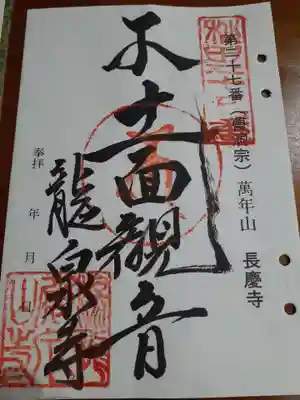 第二十七番(曹洞宗) 萬年山 長慶寺
十一面観音
龍泉寺
奉拝 年 月 日